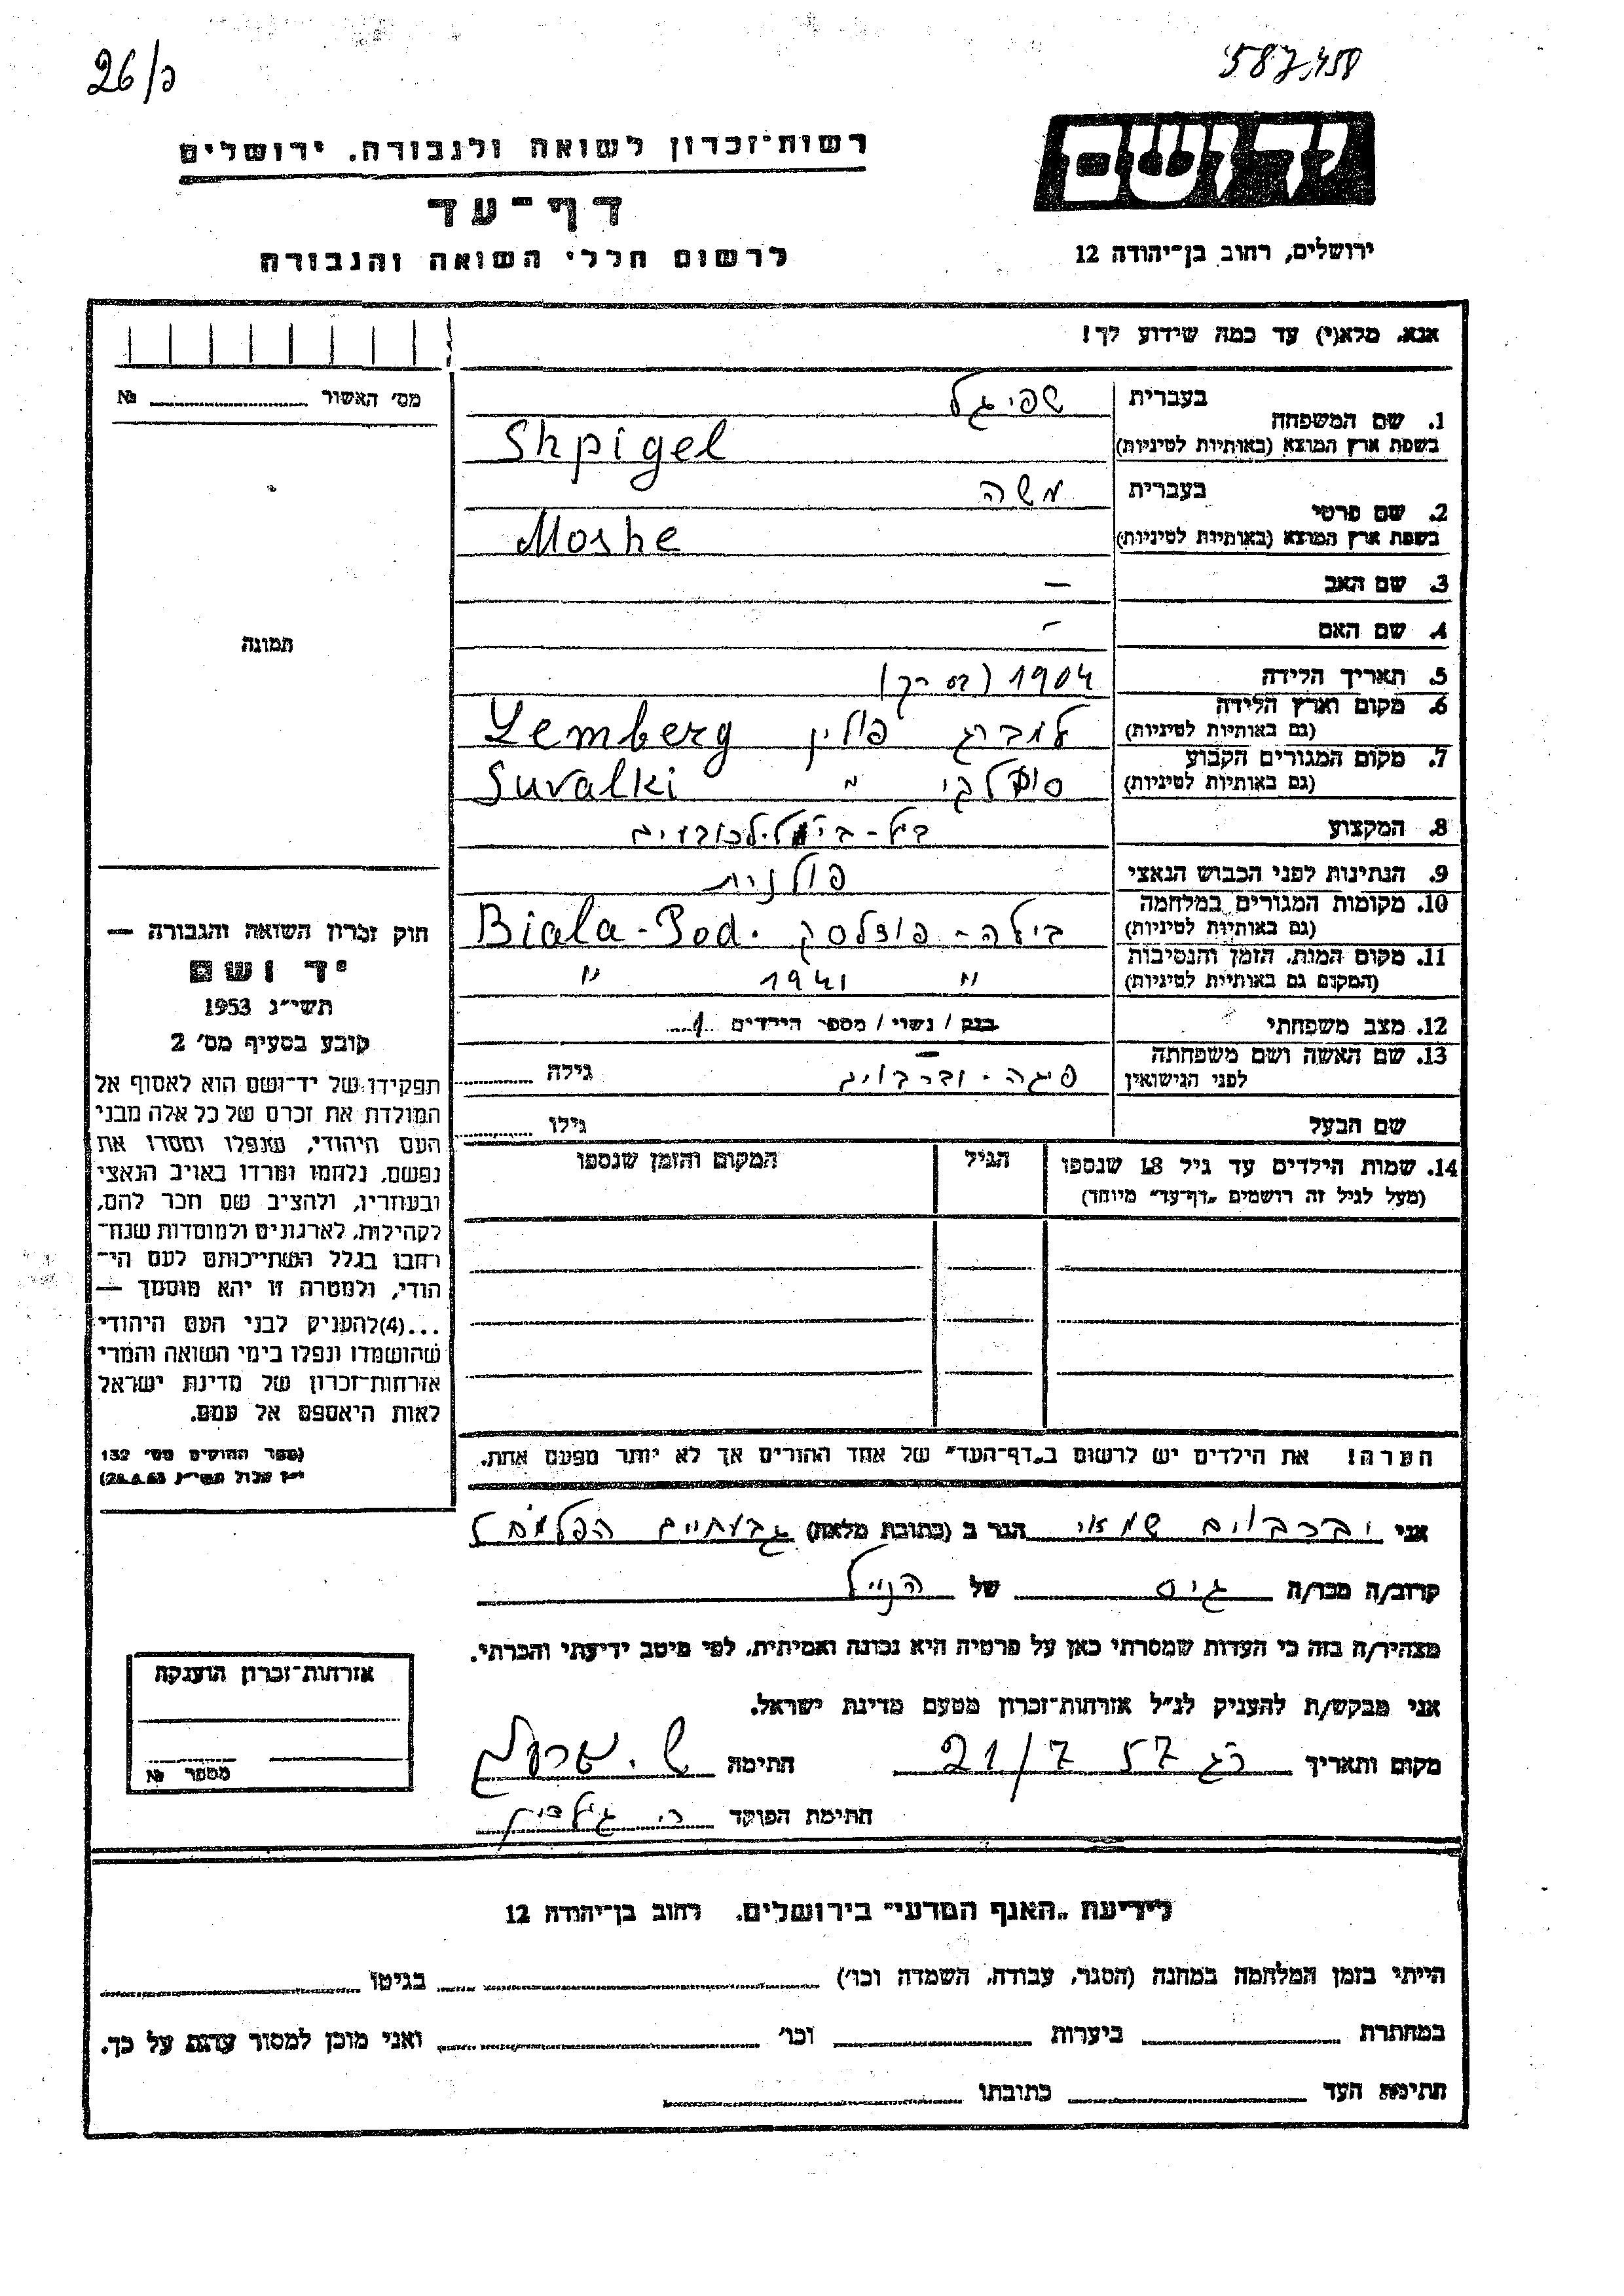 26/כ
587,458
רשות־זכרון לשואה ולגבורה, ירושלים
דף־עד
לרשום חללי השואה והגבורה
יד ושם
ירושלים, רחוב בן־יהודה 12
אנא, מלא(י) עד כמה שידוע לך!
מס׳ האשור № 
1. שם המשפחה בעברית שפיגל
בשפת ארץ המוצא (באותיות לטיניות) Shpigel
2. שם פרטי בעברית משה
בשפת ארץ המוצא (באותיות לטיניות) Moshe
3. שם האב –
4. שם האם –
תמונה
5. תאריך הלידה 1904
6. מקום וארץ הלידה (גם באותיות לטיניות) למברג פולין Lemberg
7. מקום המגורים הקבוע (גם באותיות לטיניות) סובלקי " Suvalki
8. המקצוע
9. הנתינות לפני הכבוש הנאצי פולנית
10. מקומות המגורים במלחמה (גם באותיות לטיניות) בילה-פודלסק Biala-Pod.
11. מקום המות, הזמן והנסיבות (המקום גם באותיות לטיניות) " 1941 "
12. מצב משפחתי רווק / נשוי / מספר הילדים 1
13. שם האשה ושם משפחתה לפני הנישואין פיגה - גילה
שם הבעל גילו
14. שמות הילדים עד גיל 18 שנספו (מעל לגיל זה רושמים „דף־עד״ מיוחד)
הגיל
המקום והזמן שנספו
הערה! את הילדים יש לרשום ב„דף־העד״ של אחד ההורים אך לא יותר מפעם אחת.
חוק זכרון השואה והגבורה —
יד ושם
תשי״ג 1953
קובע בסעיף מס׳ 2
תפקידו של יד־ושם הוא לאסוף אל
המולדת את זכרם של כל אלה מבני
העם היהודי, שנפלו ומסרו את
נפשם, נלחמו ומרדו באויב הנאצי
ובעוזריו, ולהציב שם וזכר להם,
לקהילות, לארגונים ולמוסדות שנח־
רבו בגלל השתייכותם לעם הי־
הודי, ולמטרה זו יהא מוסמך —
...(4) להעניק לבני העם היהודי
שהושמדו ונפלו בימי השואה והמרי
אזרחות־זכרון של מדינת ישראל
לאות היאספם אל עמם.
(ספר החוקים מס׳ 132
י״ז אלול תשי״ג 28.8.53)
אני שמאי הגר ב (כתובת מלאה) גבעתיים
קרוב/ה מכר/ה גיס של הנ״ל
מצהיר/ה בזה כי העדות שמסרתי כאן על פרטיה היא נכונה ואמיתית, לפי מיטב ידיעתי והכרתי.
אני מבקש/ת להעניק לנ״ל אזרחות־זכרון מטעם מדינת ישראל.
מקום ותאריך רג 21/7 57 חתימה
חתימת הפוקד
אזרחות־זכרון הוענקה
מספר №
לידיעת „האגף המדעי״ בירושלים, רחוב בן־יהודה 12
הייתי בזמן המלחמה במחנה (הסגר, עבודה, השמדה וכו׳) בגיטו
במחתרת ביערות וכו׳ ואני מוכן למסור עדות על כך.
חתימת העד כתובתו